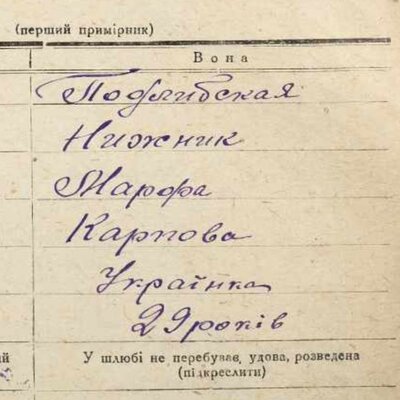 (перший примірник)
Вона
Нижник
Марфа
Карпова
Українка
29 років
У шлюбі не перебував, удова, розведена
(підкреслити)